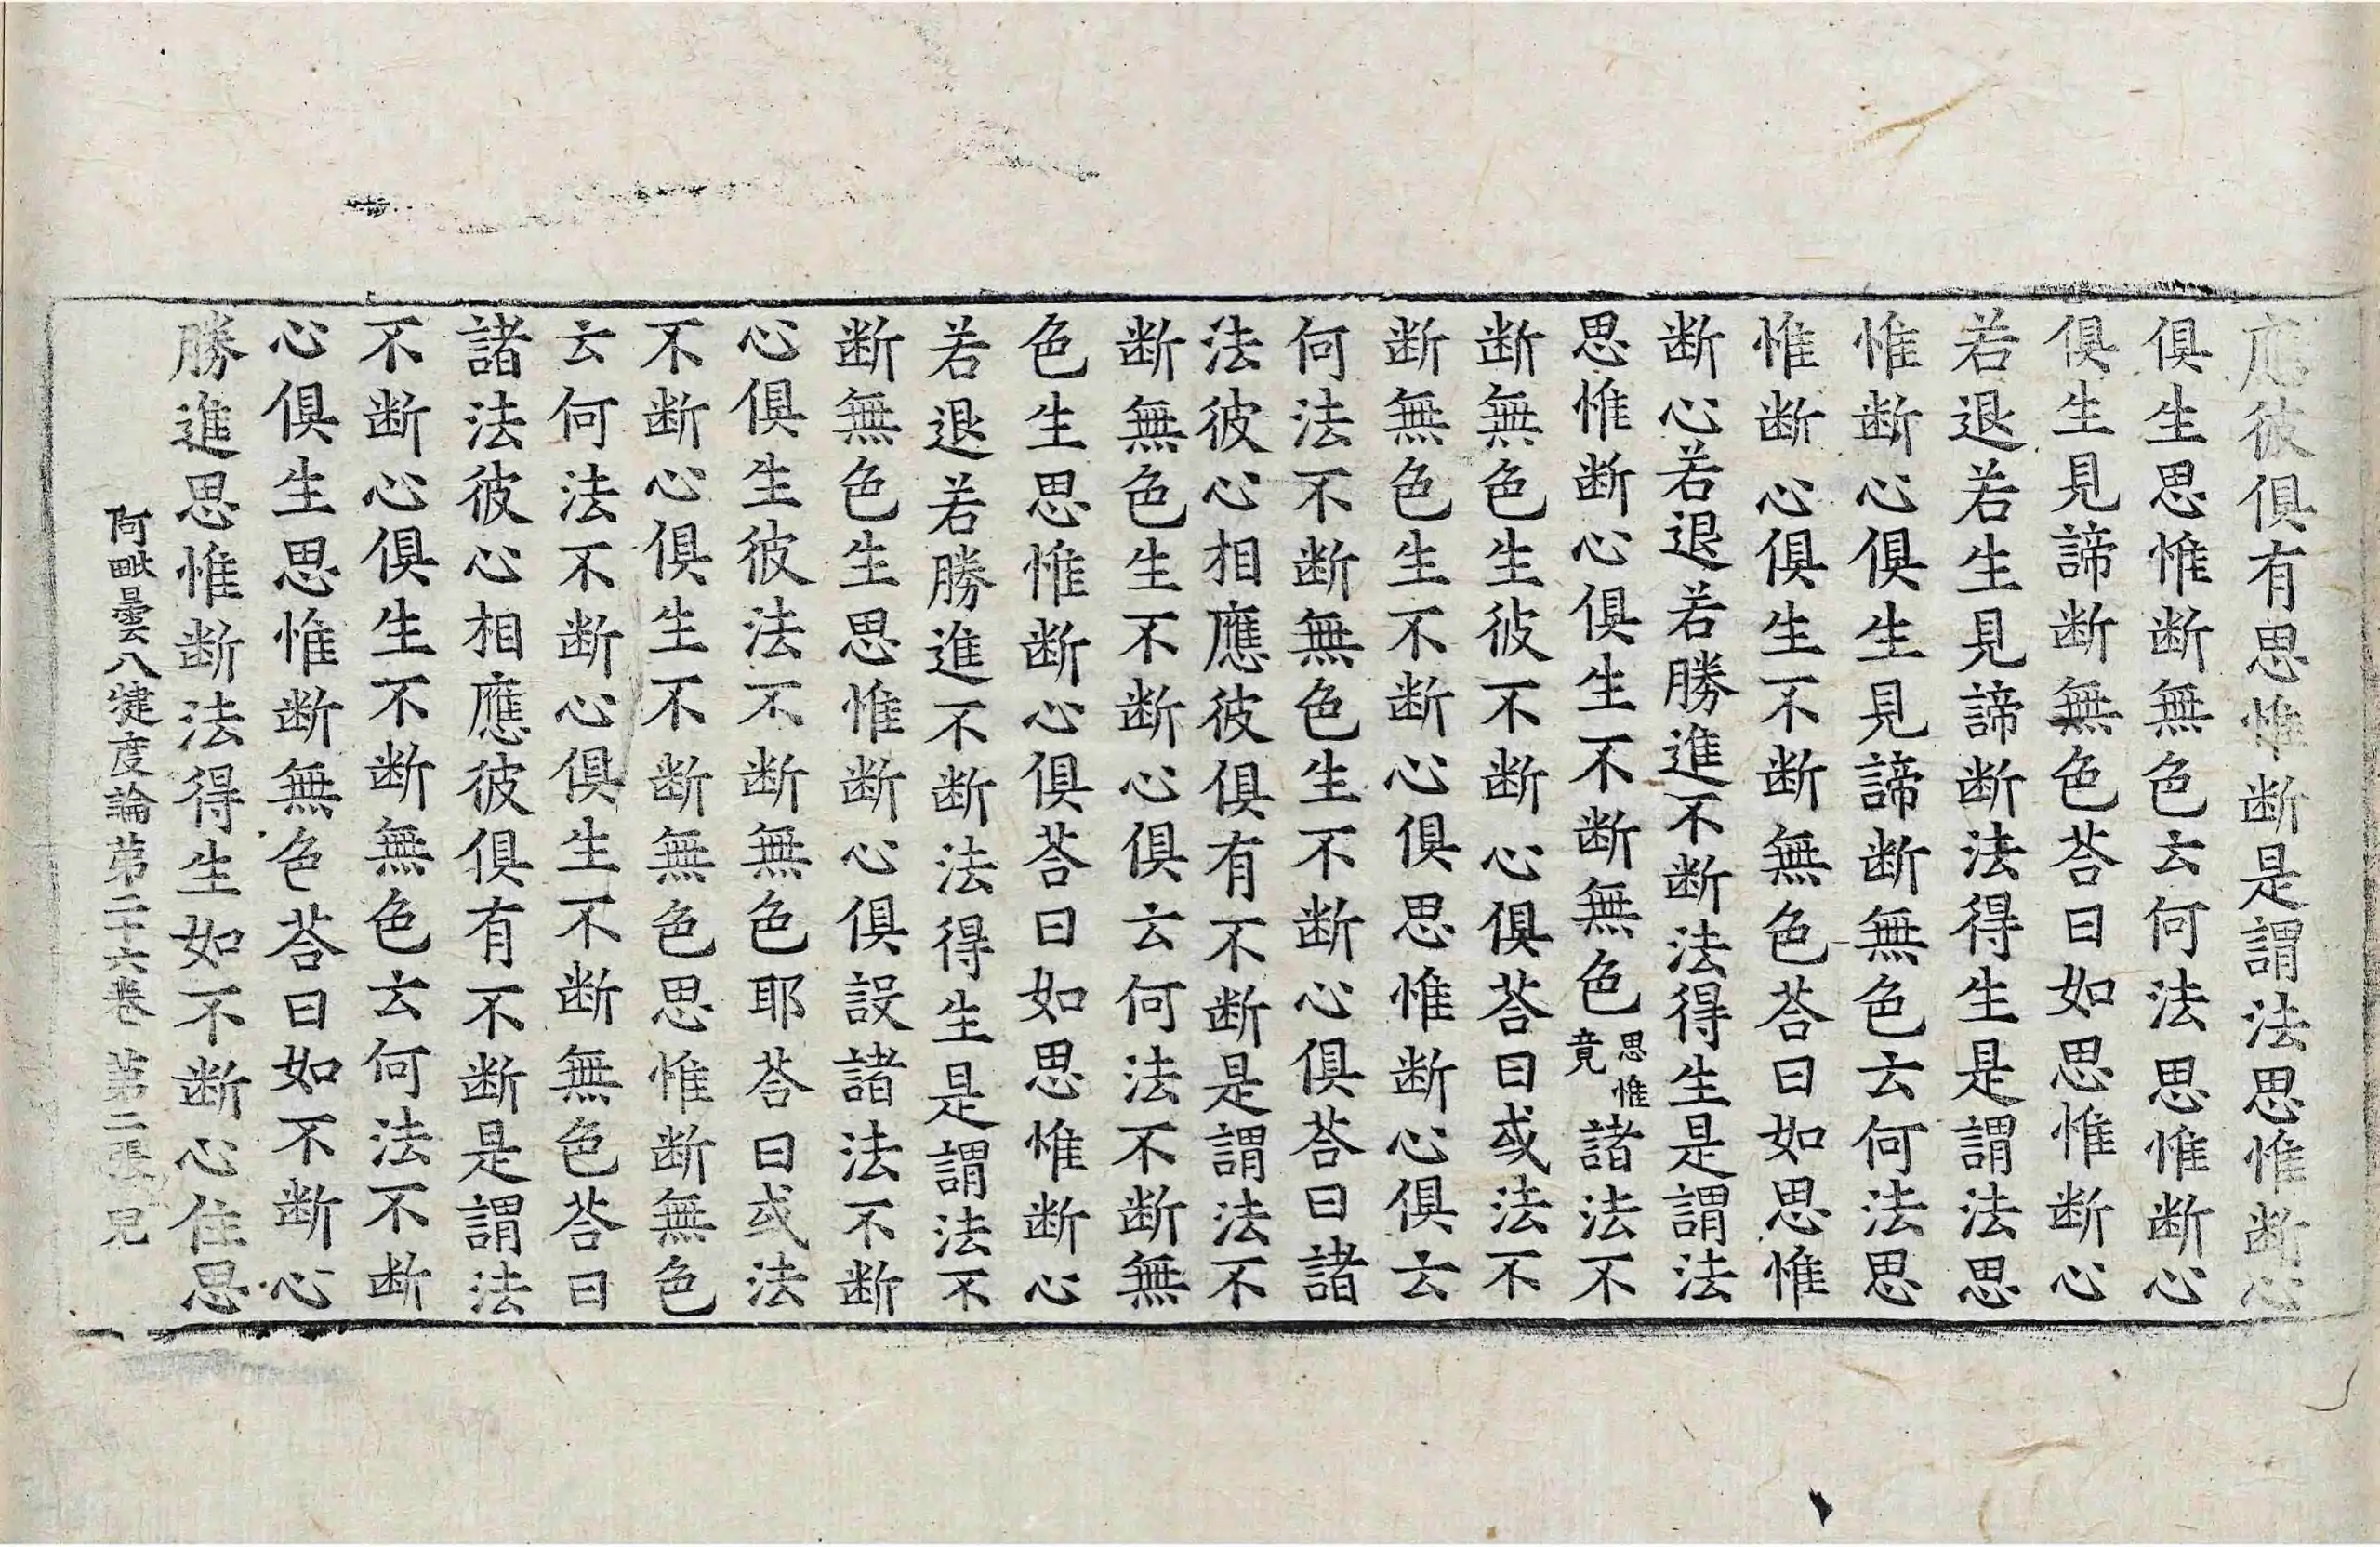 應彼俱有思惟断是謂法思惟断心
俱生思惟断無色云何法思惟断心
俱生見諦断無色荅曰如思惟断心
若退若生見諦断法得生是謂法思
惟断心俱生見諦断無色云何法思
惟断心俱生不断無色荅曰如思惟
断心若退若勝進不断法得生是謂法
思惟断心俱生不断無色思惟竟諸法不
断無色生彼不断心俱荅曰或法不
断無色生不断心俱思惟断心俱云
何法不断無色生不断心俱荅曰諸
法彼心相應彼俱有不断是謂法不
断無色生不断心俱云何法不断無
色生思惟断心俱荅曰如思惟断心
若退若勝進不断法得生是謂法不
断無色生思惟断心俱設諸法不断
心俱生彼法不断無色耶荅曰或法
不断心俱生不断無色思惟断無色
云何法不断心俱生不断無色荅曰
諸法彼心相應彼俱有不断是謂法
不断心俱生不断無色云何法不断
心俱生思惟断無色荅曰如不断心
勝進思惟断法得生如不断心住思
阿毗曇八犍度論第二十六卷 第二張 兄